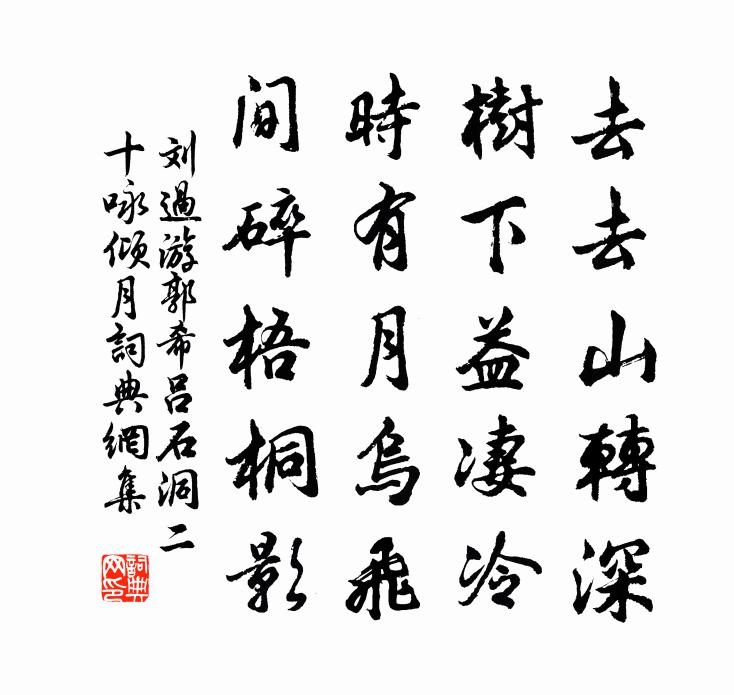 去去山轉深
樹下益凄冷
時有月烏飛
間碎梧桐影
刘過游郭希呂石洞二
十咏傾月詞典網集
詞典
网印